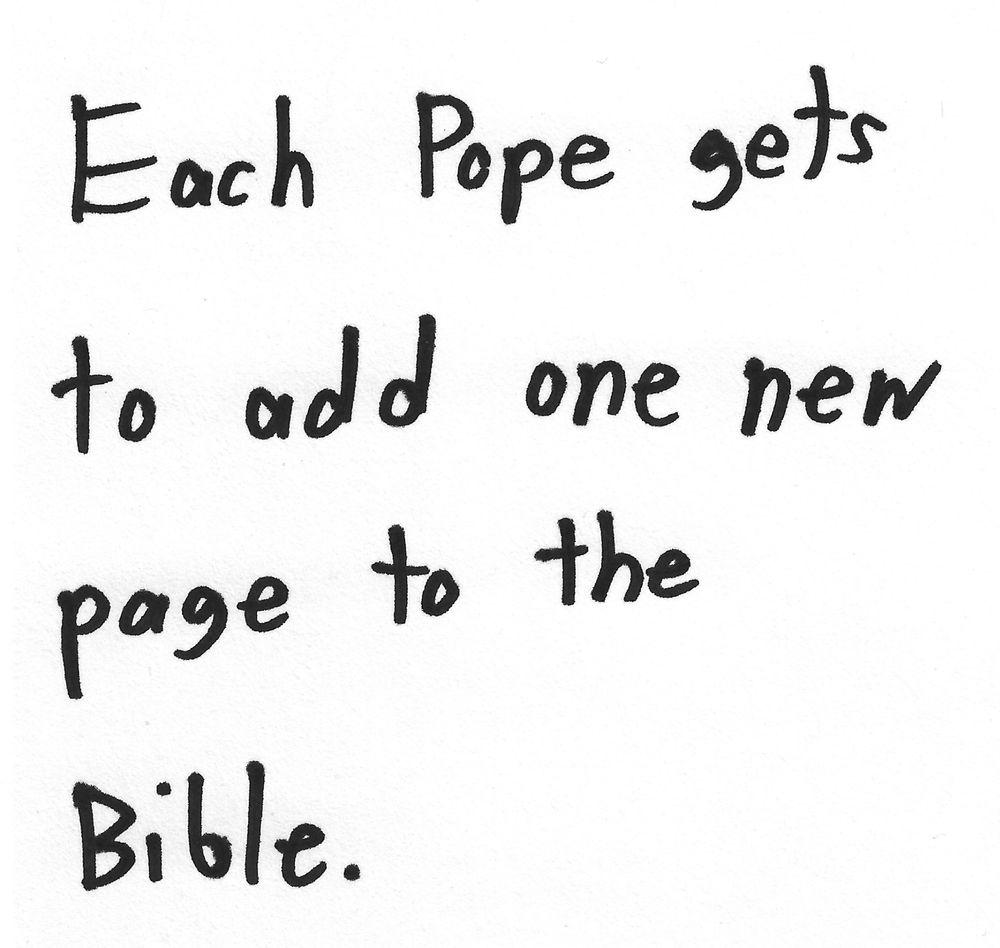 Each Pope gets
to add one new
page to the
Bible.